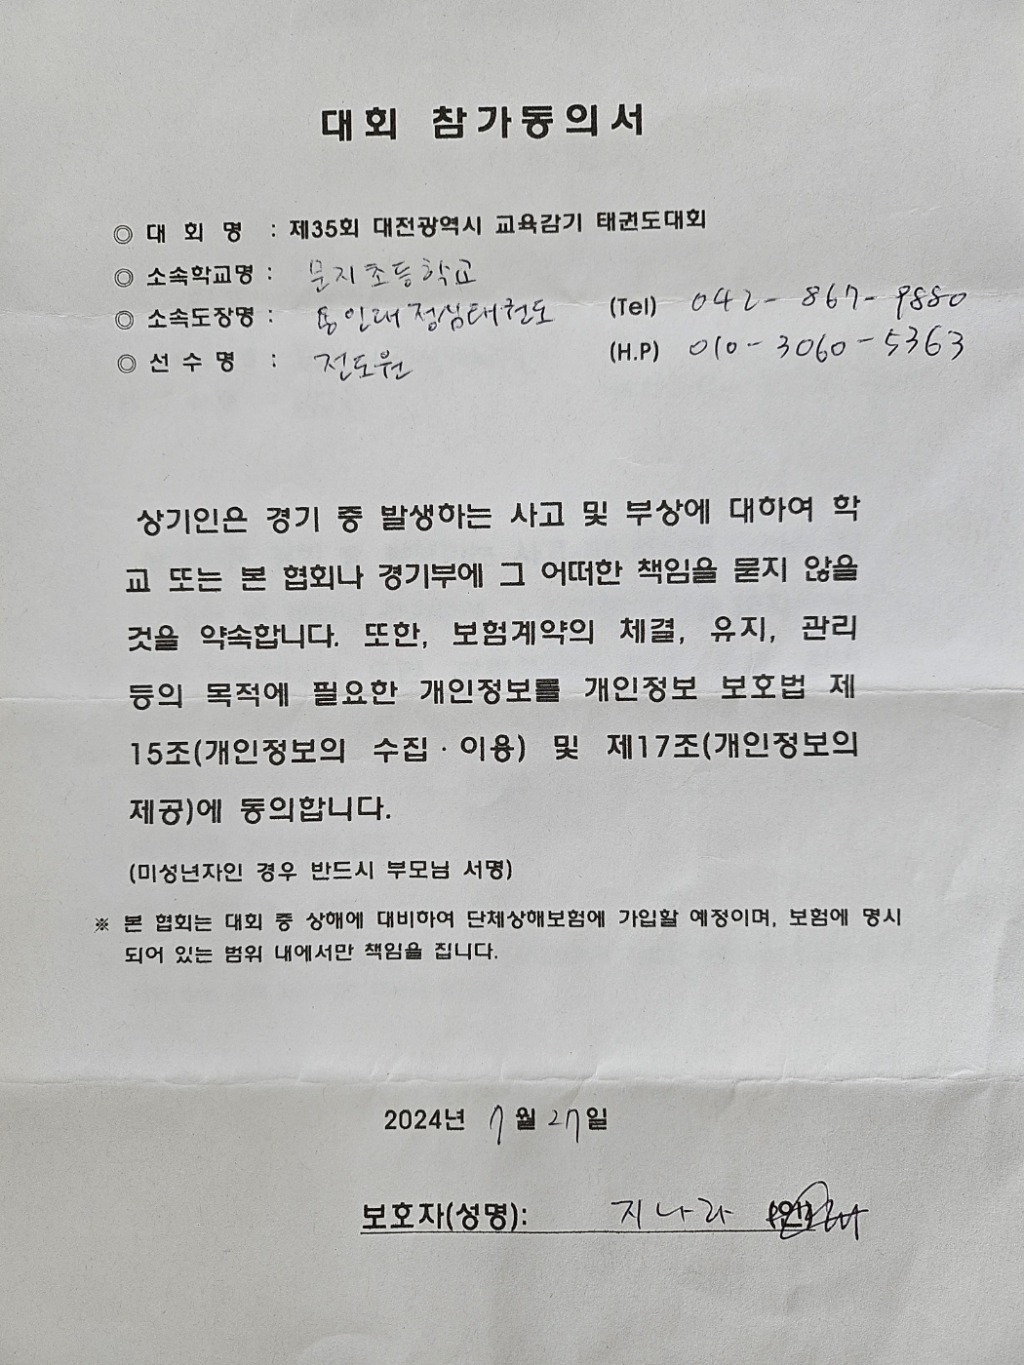 대회 참가동의서
◎ 대 회 명 : 제35회 대전광역시 교육감기 태권도대회
◎ 소속학교명 : 문지초등학교
◎ 소속도장명 : 용인대정심태권도 (Tel) 042-867-9880
◎ 선 수 명 : 전도원 (H.P) 010-3060-5363
상기인은 경기 중 발생하는 사고 및 부상에 대하여 학
교 또는 본 협회나 경기부에 그 어떠한 책임을 묻지 않을
것을 약속합니다. 또한, 보험계약의 체결, 유지, 관리
등의 목적에 필요한 개인정보를 개인정보 보호법 제
15조(개인정보의 수집·이용) 및 제17조(개인정보의
제공)에 동의합니다.
(미성년자인 경우 반드시 부모님 서명)
※ 본 협회는 대회 중 상해에 대비하여 단체상해보험에 가입할 예정이며, 보험에 명시
되어 있는 범위 내에서만 책임을 집니다.
2024년 7월 27일
보호자(성명): 지나라 (인)